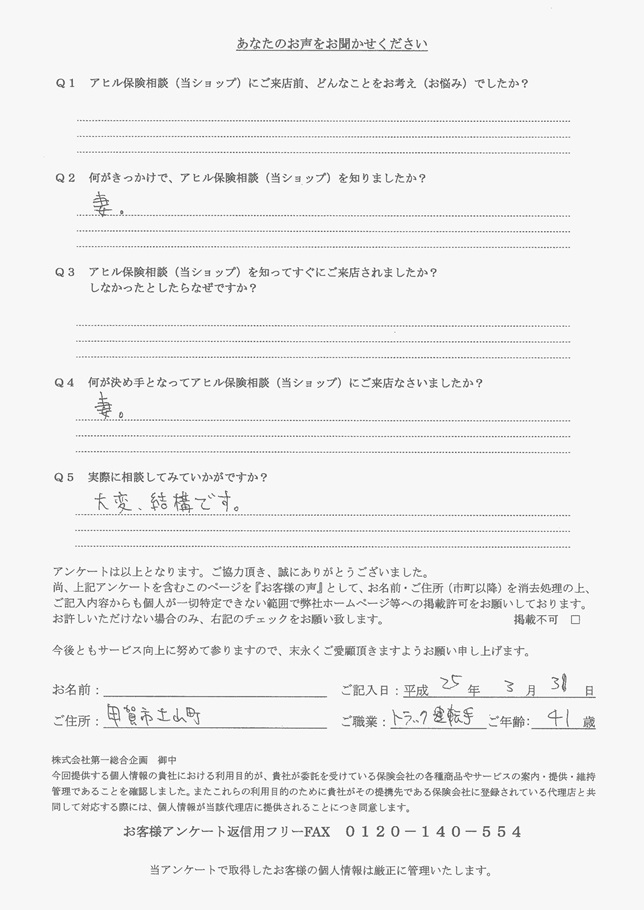 あなたのお声をお聞かせください
Q1 アヒル保険相談(当ショップ)にご来店前、どんなことをお考え(お悩み)でしたか?
Q2 何がきっかけで、アヒル保険相談(当ショップ)を知りましたか?
妻。
Q3 アヒル保険相談(当ショップ)を知ってすぐにご来店されましたか?
しなかったとしたらなぜですか?
Q4 何が決め手となってアヒル保険相談(当ショップ)にご来店なさいましたか?
妻。
Q5 実際に相談してみていかがですか?
大変、結構です。
アンケートは以上となります。ご協力頂き、誠にありがとうございました。
尚、上記アンケートを含むこのページを『お客様の声』として、お名前・ご住所(市町以降)を消去処理の上、
ご記入内容からも個人が一切特定できない範囲で弊社ホームページ等への掲載許可をお願いしております。
お許しいただけない場合のみ、右記のチェックをお願い致します。 掲載不可 □
今後ともサービス向上に努めて参りますので、末永くご愛顧頂きますようお願い申し上げます。
お名前: ご記入日:平成 25 年 3 月 31 日
ご住所:甲賀市土山町 ご職業:トラック運転手 ご年齢: 41 歳
株式会社第一総合企画 御中
今回提供する個人情報の貴社における利用目的が、貴社が委託を受けている保険会社の各種商品やサービスの案内・提供・維持
管理であることを確認しました。またこれらの利用目的のために貴社がその提携先である保険会社に登録されている代理店と共
同して対応する際には、個人情報が当該代理店に提供されることにつき同意します。
お客様アンケート返信用フリーFAX 0120-140-554
当アンケートで取得したお客様の個人情報は厳正に管理いたします。